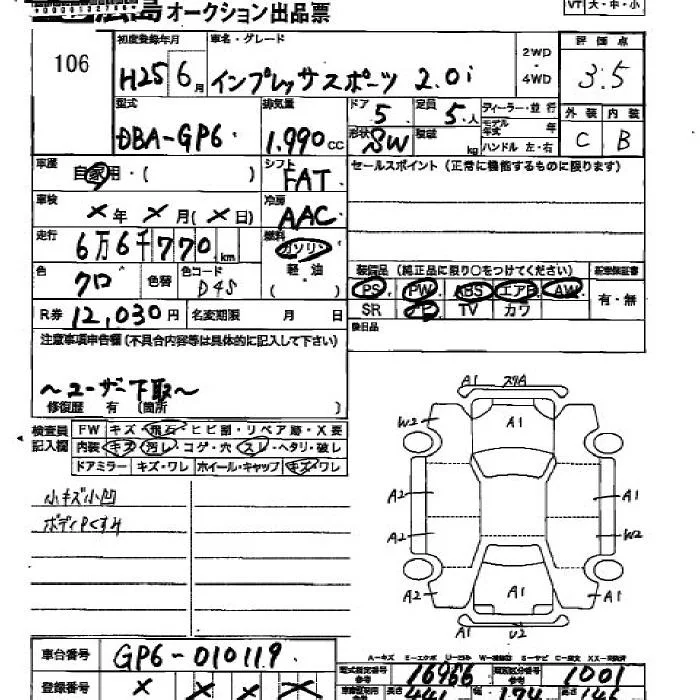 広島オークション出品票
VT 大・中・小
106
初度登録年月
車名・グレード
H25 6月 インプレッサスポーツ 2.0i
2WD
・
4WD
評価点
3.5
型式
排気量
ドア
定員
ディーラー・並行
外装 内装
DBA-GP6
1,990 CC
5
5人
モデル年式 年
形状 SW 積載 kg
ハンドル 左・右
C B
車歴
自家用・( )
シフト
FAT
セールスポイント (正常に機能するものに限ります)
車検
× 年 × 月(× 日)
冷房
AAC
走行
6万6千770 km
燃料
ガソリン
軽油
色
クロ
色替
色コード
D4S
装備品 (純正品に限り○をつけてください)
新車保証書
PS PW ABS エアB AW
有・無
SR ナビ TV カワ
R券 12,030円 名変期限 月 日
後日品
注意事項申告欄 (不具合内容等は具体的に記入して下さい)
〜ユーザー下取〜
修復歴 有 (箇所 )
検査員記入欄
FW キズ・飛石・ヒビ割・リペア跡・X要
内装 キズ・汚レ・コゲ・穴・スレ・ヘタリ・破レ
ドアミラー キズ・ワレ ホイール・キャップ キズ・ワレ
小キズ小凹
ボディPくすみ
A1 スリA
W2 A1
A2 A1
A2 W2
A2 A1 A1
A1 U2
A-キズ E-エクボ U-凹み W-補修跡 S-サビ C-腐食 XX-交換済
車台番号 GP6-010119
型式指定番号 参考 16966
類別区分番号 参考 1001
登録番号 × × × ×
長さ 441 幅 174 高さ 146